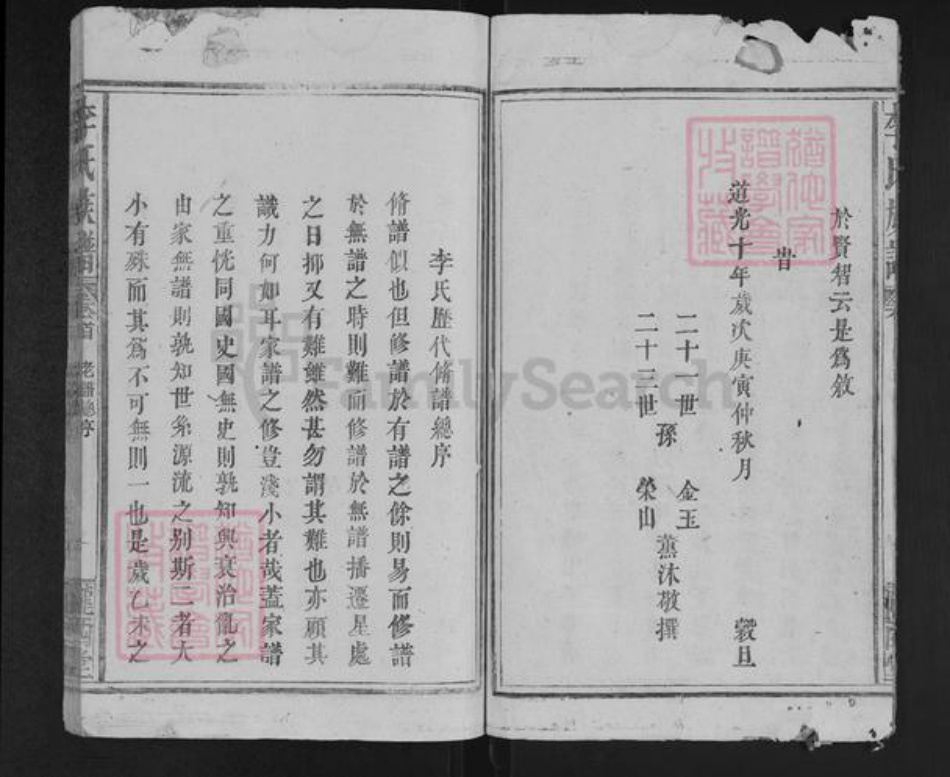 於賢智云是爲敘
旹
道光十年歲次庚寅仲秋月 穀旦
二十一世 金玉
孫 薰沐敬撰
二十三世 榮山
李氏歷代脩譜總序
脩譜似也但修譜於有譜之餘則易而修譜
於無譜之時則難而修譜於無譜播遷星處
之日抑又有難雖然甚勿謂其難也亦顧其
識力何如耳家譜之修豈淺小者哉蓋家譜
之重恍同國史國無史則孰知興衰治亂之
由家無譜則孰知世系源流之别斯二者大
小有殊而其爲不可無則一也是歲乙未之
李氏族譜
卷首
老譜總序
隴西堂
FamilySearch